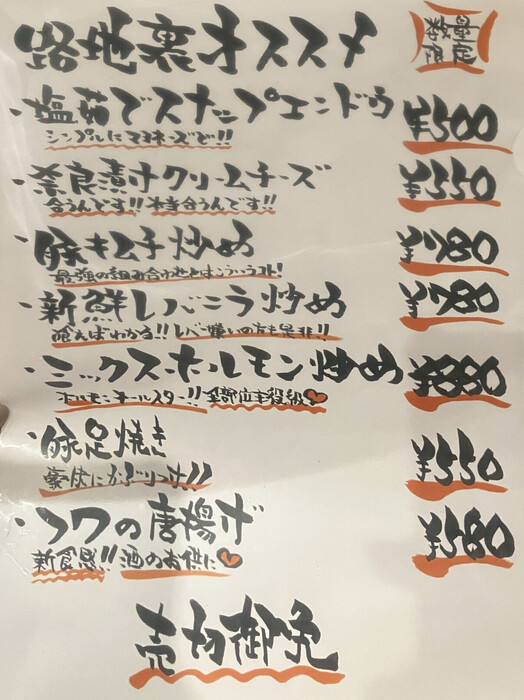 路地裏オススメ
数量限定
・塩茹でスナップエンドウ ¥500
シンプルにマヨネーズで!!
・奈良漬けクリームチーズ ¥550
合うんです!! 本当合うんです!!
・豚キムチ炒め ¥780
最強の組み合わせとはこういうコト!
・新鮮レバニラ炒め ¥780
喰えばわかる!! レバー嫌いの方も是非!!
・ミックスホルモン炒め ¥880
ホルモンオールスター!! 全部位主役級♥
・豚足焼き ¥550
豪快にかぶりつけ!!
・フワの唐揚げ ¥580
新食感!! 酒のお供に♥
売切御免